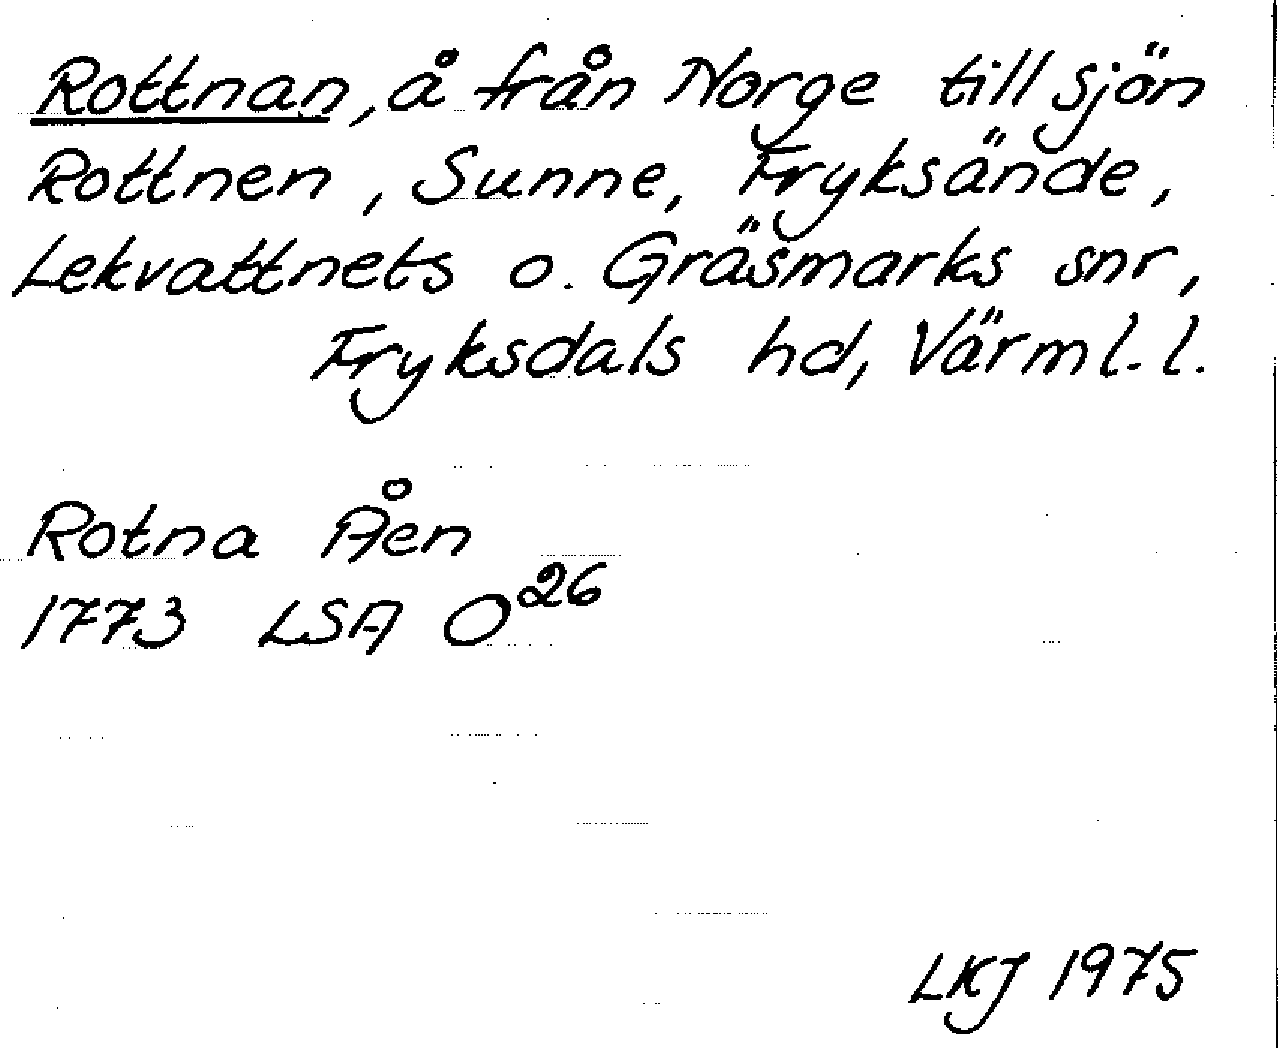 Rottnan, å från Norge till sjön
Rottnen, Sunne, Fryksände,
Lekvattnets o. Gräsmarks snr,
Fryksdals hd, Värml. l.
Rotna Åen
1773 LSA O26
LKJ 1975